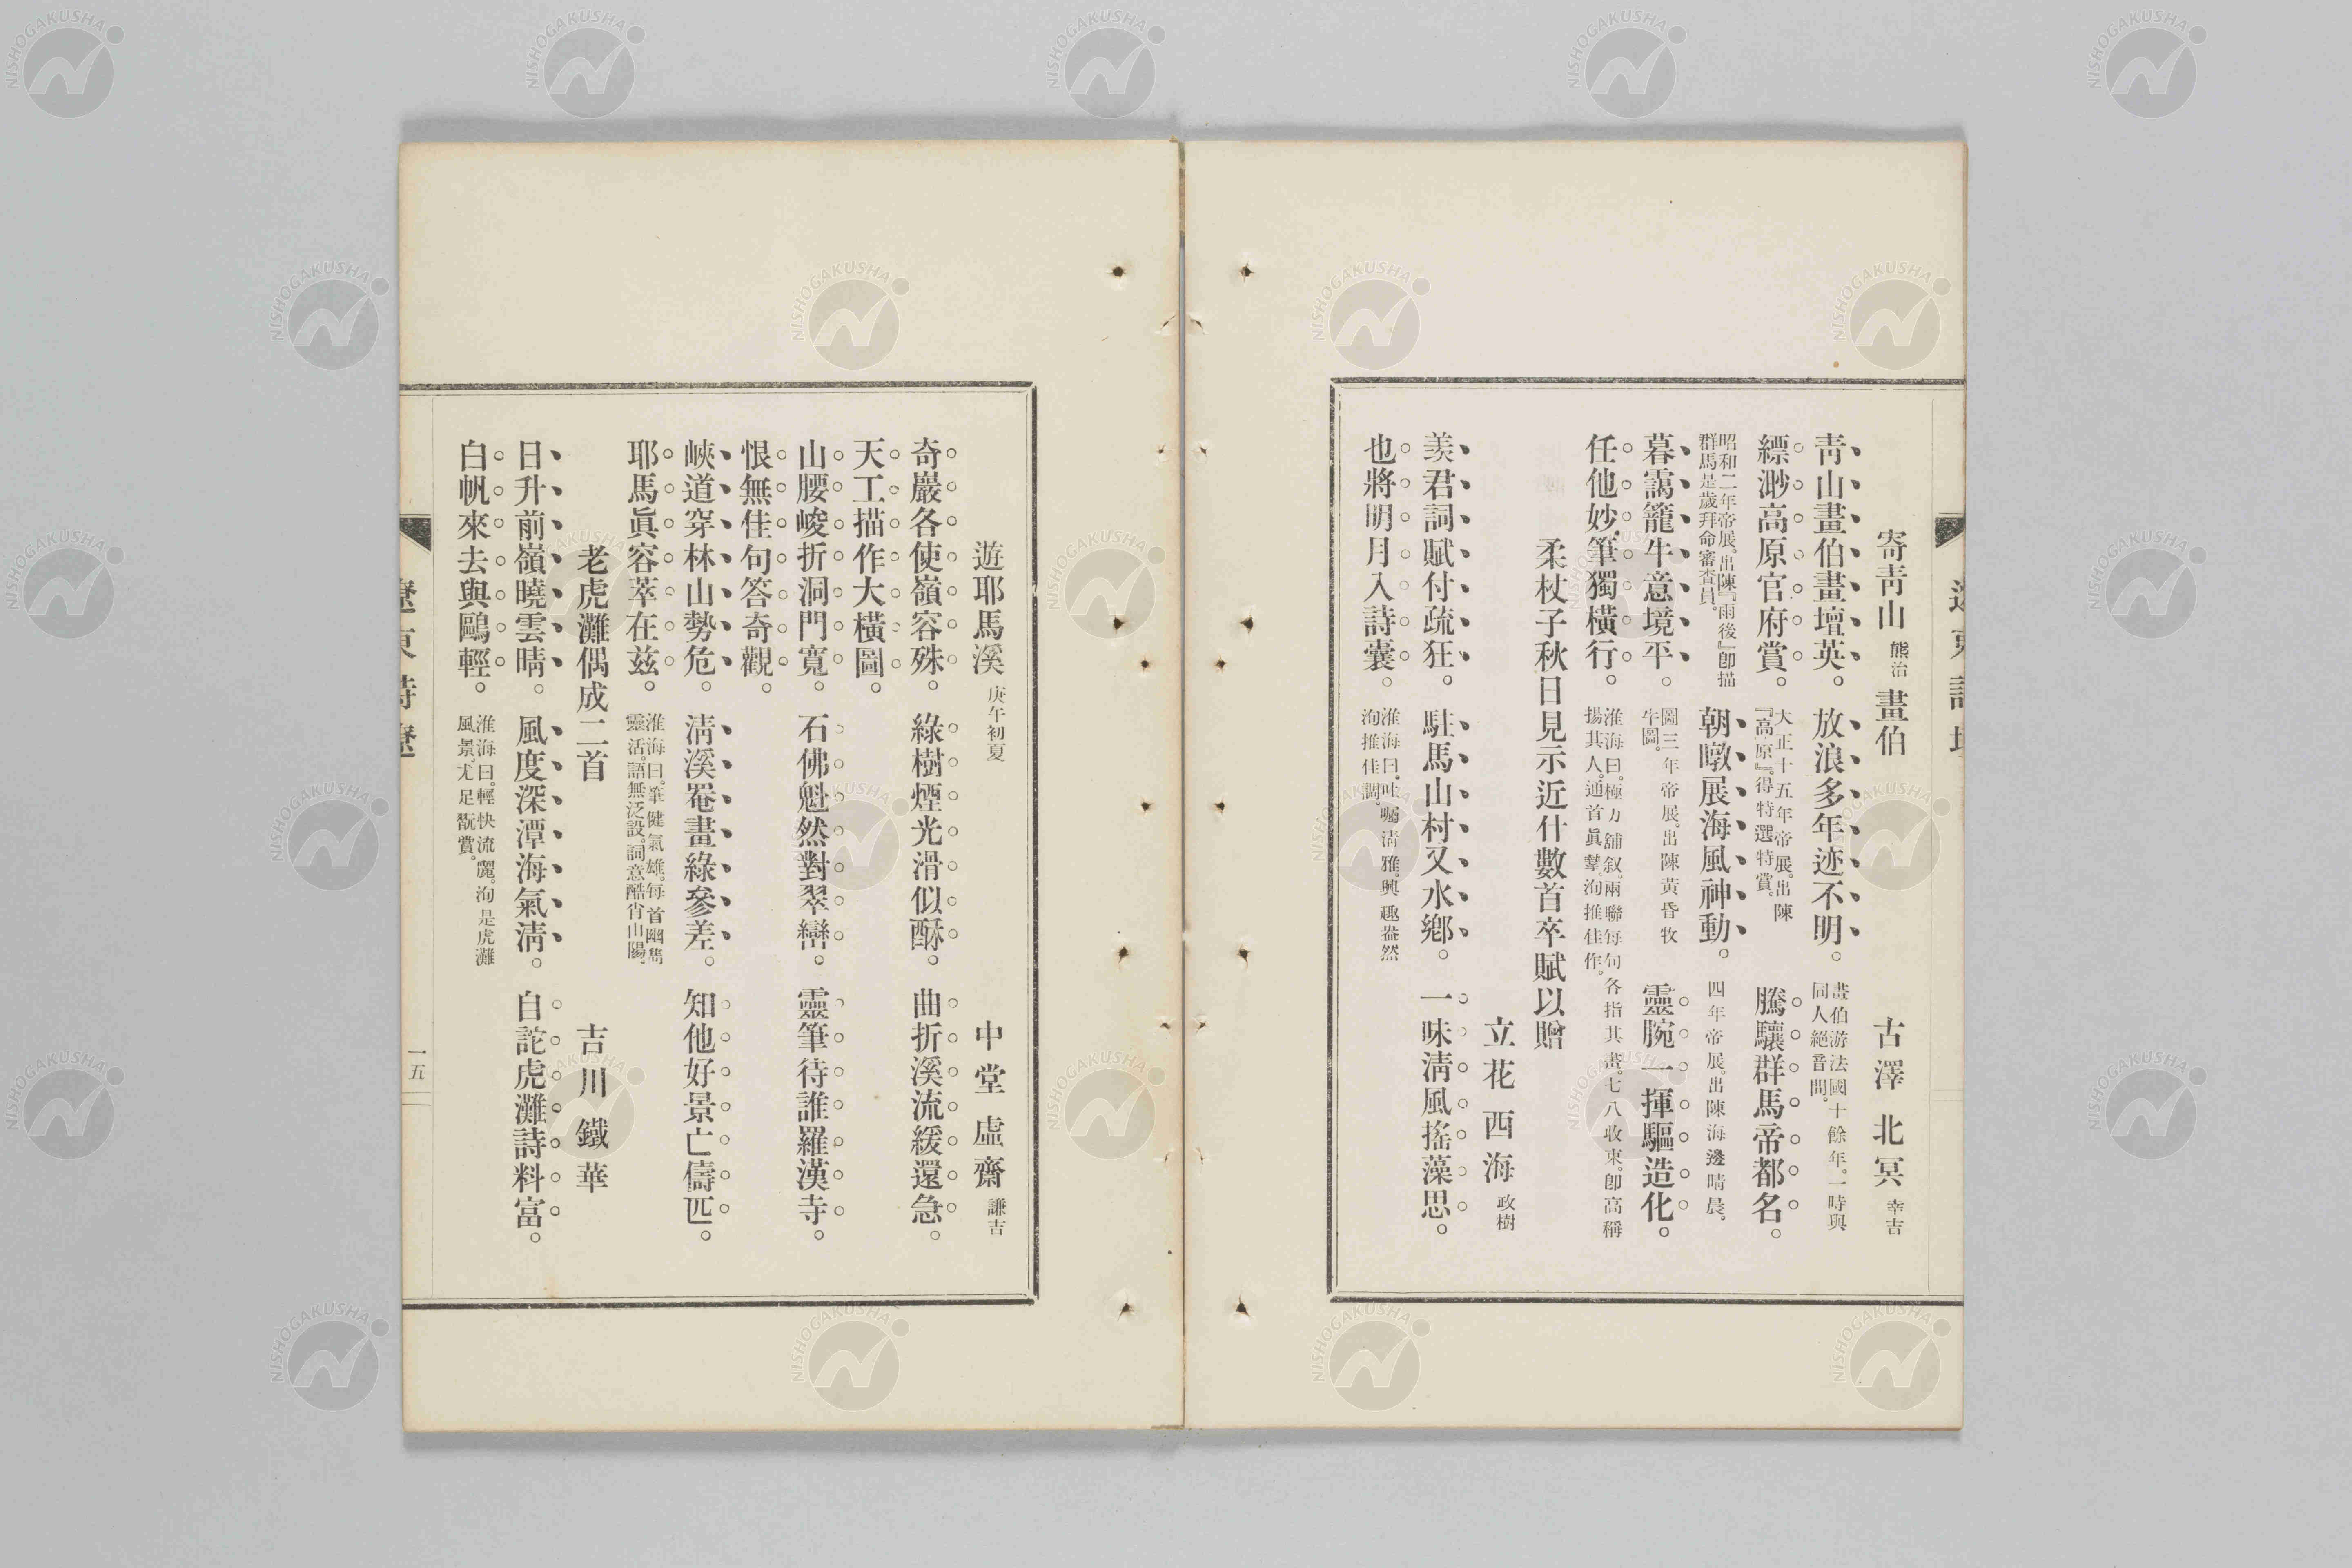 寄靑山熊治畫伯　古澤北冥幸吉
靑山畫伯畫壇英。放浪多年迹不明。畫伯游法國十餘年。一時與同人絕音問。
縹渺高原官府賞。大正十五年帝展。出陳『高原』。得特選特賞。騰驤群馬帝都名。
昭和二年帝展。出陳『雨後』卽描群馬是歲拜命審査員。朝暾展海風神動。四年帝展。出陳海邊晴晨。
暮靄籠牛意境平。圖三年帝展。出陳黃昏牧牛圖。靈腕一揮驅造化。
任他妙筆獨橫行。淮海曰。極力舖叙。兩聯每句各指其畫。七八收束。卽高稱揚其人。通首眞摯。洵推佳作。
柔杖子秋日見示近什數首卒賦以贈
立花西海政樹
羨君詞賦付疏狂。駐馬山村又水鄕。一味淸風搖藻思。
也將明月入詩囊。淮海曰。吐囑淸雅。興趣盎然洵推佳調。
遊耶馬溪庚午初夏　中堂虛齋謙吉
奇巖各使嶺容殊。綠樹煙光滑似酥。曲折溪流緩還急。
天工描作大橫圖。
山腰峻折洞門寬。石佛魁然對翠巒。靈筆待誰羅漢寺。
恨無佳句答奇觀。
峽道穿林山勢危。淸溪罨畫綠參差。知他好景亡儔匹。
耶馬眞容萃在玆。淮海曰。筆健氣雄。每首幽雋靈活。語無泛設。詞意酷肖山陽。
老虎灘偶成二首　吉川鐵華
日升前嶺曉雲晴。風度深潭海氣淸。自詫虎灘詩料富。
白帆來去與鷗輕。淮海曰。輕快流麗。洵是虎灘風景。尤足翫賞。
一五